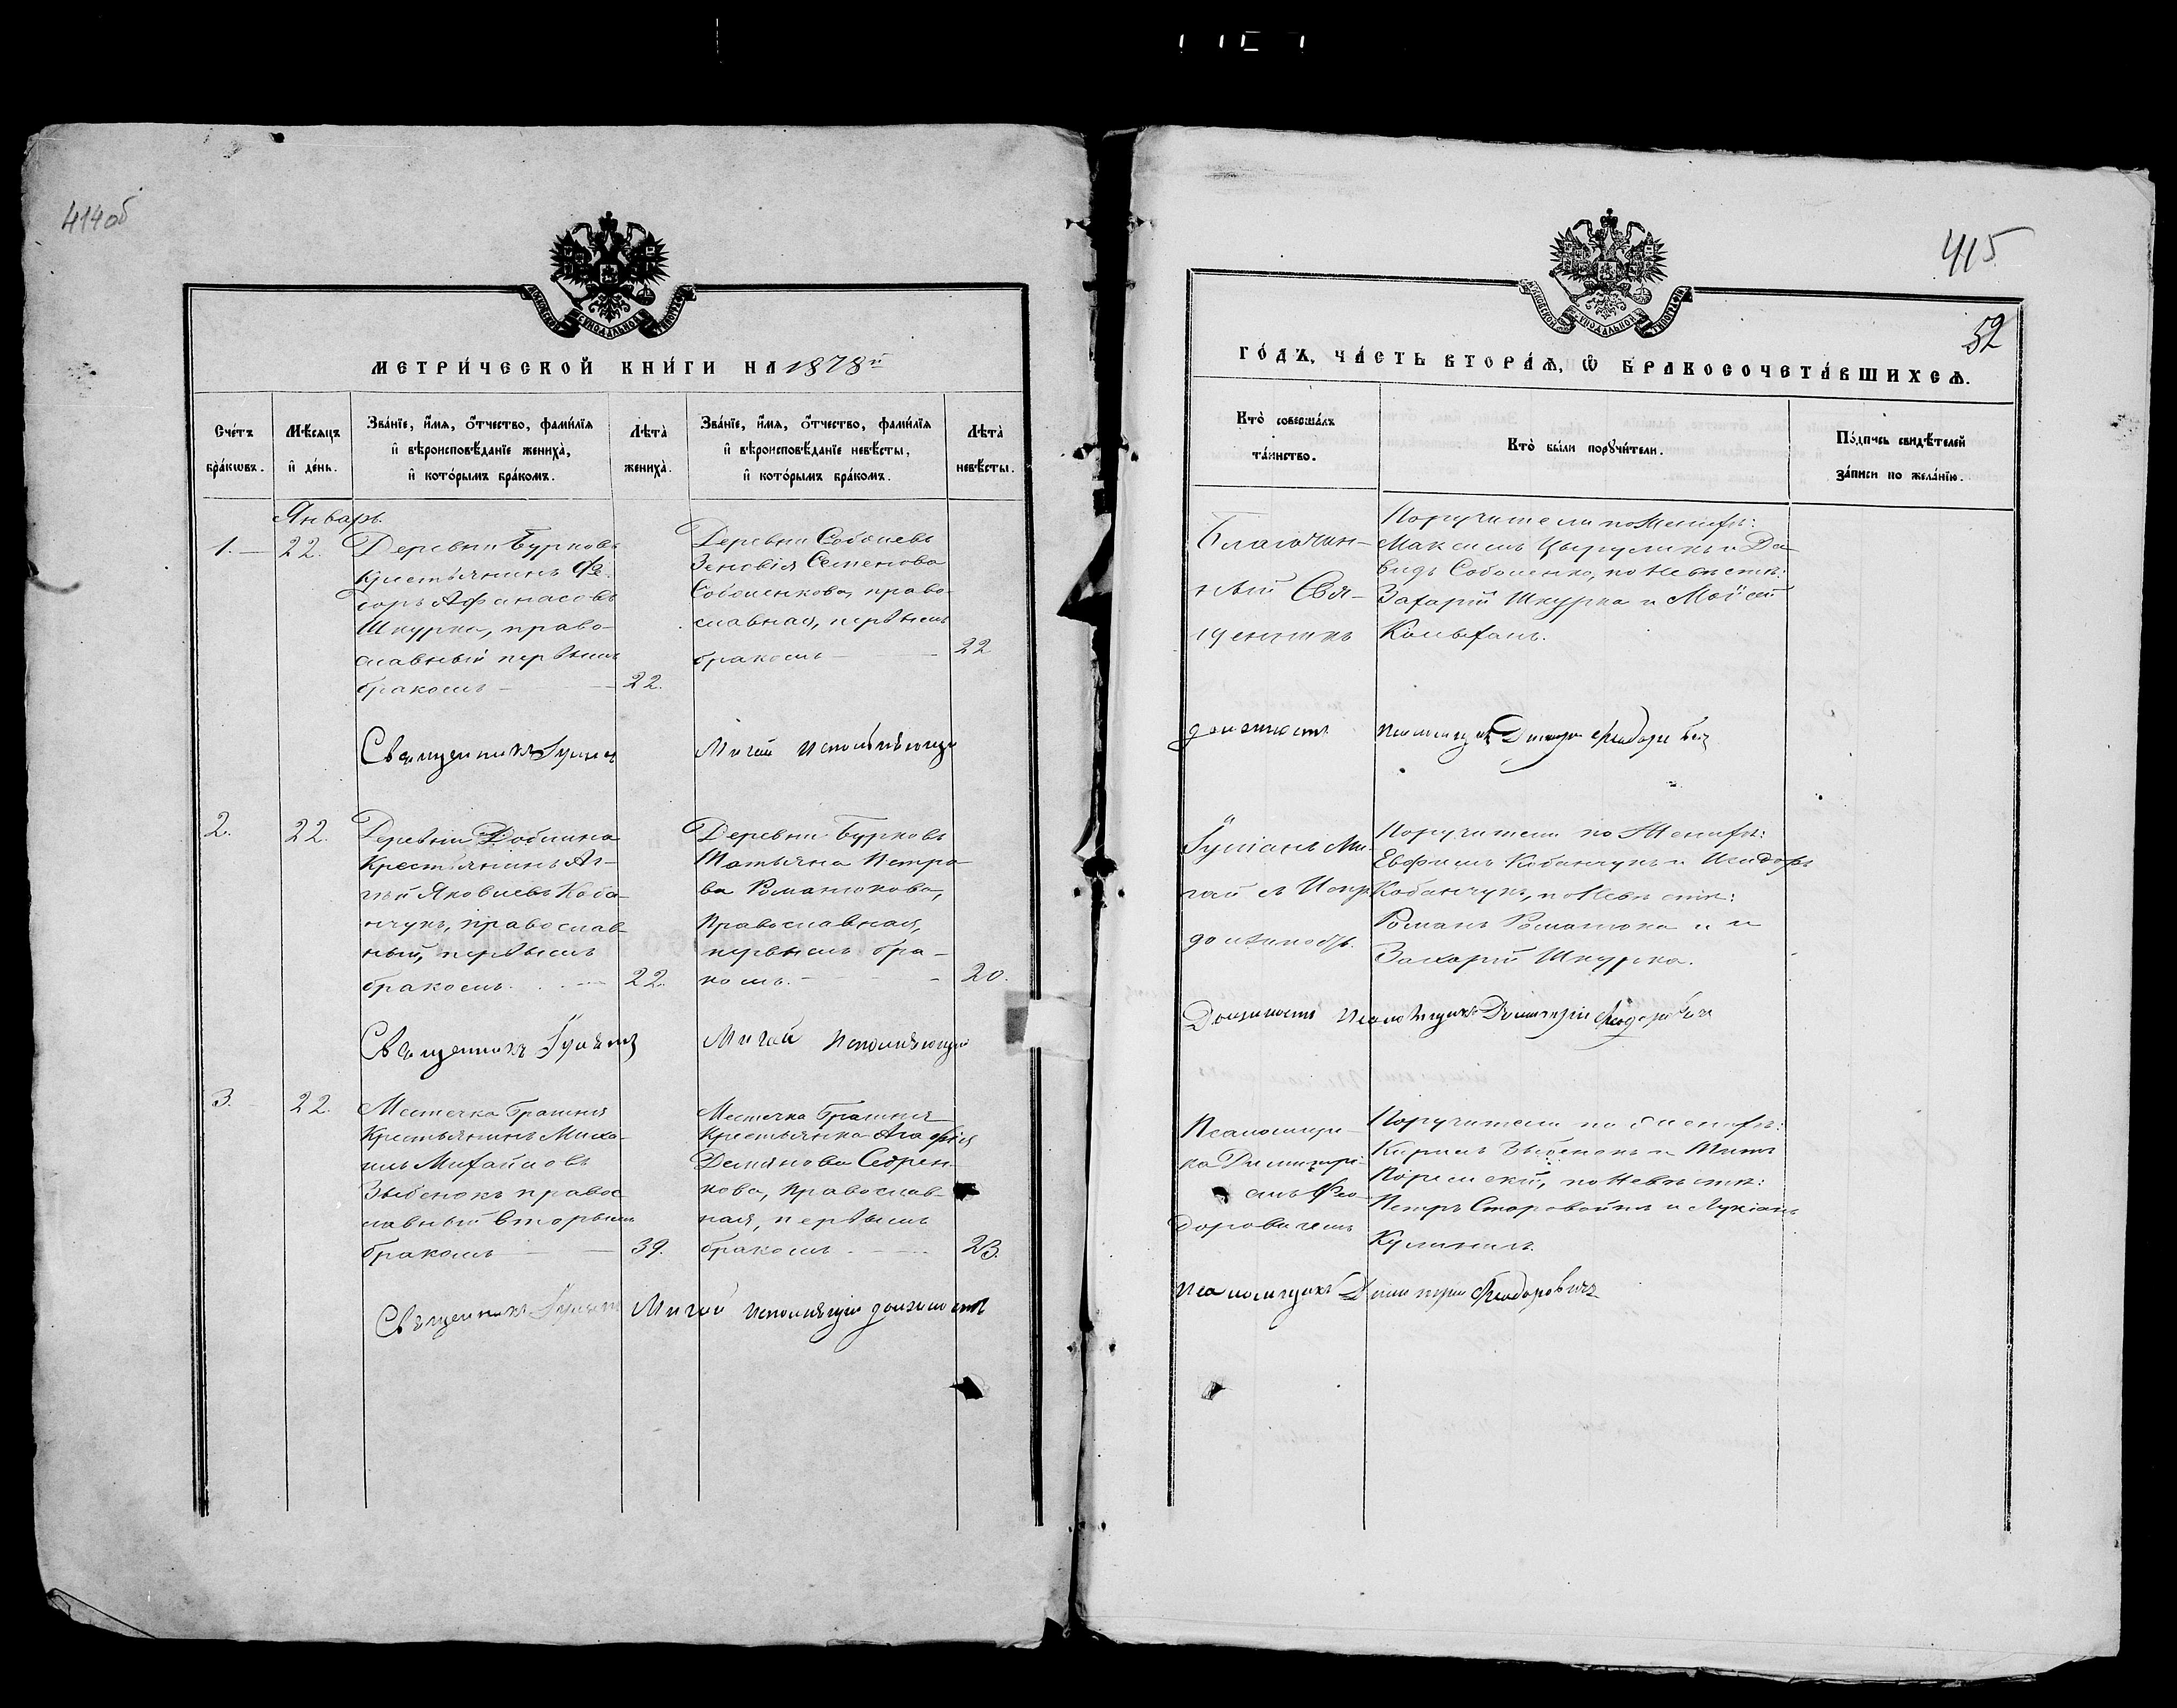 414об
МЕТРИ́ЧЕСКОЙ КНИ́ГИ НА 1878й
Сче́тъ бра́кωвъ.
Мѣ́сяцъ и҆ де́нь.
Зва́нїе, и҆́мя, ѻ҆́тчество, фами́лїя
и҆ вѣроисповѣ́данїе жениха̀,
и҆ кото́рымъ бра́комъ.
Лѣта̀ жениха̀.
Зва́нїе, и҆́мя, ѻ҆́тчество, фами́лїя
и҆ вѣроисповѣ́данїе невѣ́сты,
и҆ кото́рымъ бра́комъ.
Лѣта̀ невѣ́сты.
Январь.
1.
22.
Деревни Бурковъ
Крестьянинъ Фе-
доръ Афанасьевъ
Шкурка, право-
славный первымъ
бракомъ
22.
Деревни Соболевъ
Зеновія Семенова
Соболенкова, право-
славная, первымъ
бракомъ
22
Священникъ Іуліанъ
Мигай Исполняющій
2.
22.
Деревни Доблина
Крестьянинъ Ан-
гій Яковлевъ Коба-
нчукъ, православ
ный, первымъ
бракомъ.
22.
Деревни Бурковъ
Татьяна Петро-
ва Романюкова,
Православная,
первымъ бра-
комъ.
20.
Священникъ Іуліанъ
Мигай Исполняющій
3.
22.
Местечка Брагиня
Крестьянинъ Миха-
илъ Михайловъ
Зыбенокъ правос
лавный вторымъ
бракомъ
39.
Местечка Брагиня
Крестьянка Агафія
Демянова
кова, православ-
ная, первымъ
бракомъ
23.
Священникъ Іуліанъ Мигай Исполняющій должность
415
52
ГО́ДЪ, ЧА́СТЬ ВТОРА́Ѧ, Ѽ БРАКОСОЧЕТА́ВШИХСѦ.
Кто̀ соверша́лъ
та́инство.
Кто̀ бы́ли порꙋчи́тели.
По́дпись свидѣ́телей
за́писи по жела́нїю.
Благочин-
ный Свя-
щенникъ
Поручители по Женихѣ:
Максимъ Цырулинъ и Да-
видъ Соболенко, по Невѣстѣ:
Захарій Шкурка и Моѵсей
Колыханъ.
должность
Псаломщикъ Димитрій Феодоровичъ
Іуліанъ Ми-
гай съ Испр.
должность.
Поручители по Женихѣ:
Евфимъ Кобанчукъ и Исидоръ
Кобанчукъ, по Невѣстѣ:
Романъ Романюка и
Захарій Шкурка.
Должность Псаломщика Димитрій Феодоровичъ
Псаломщи-
ка Димитрі-
емъ Фео-
доровичемъ
Поручители по Женихѣ:
Кирилъ Зыбенокъ и Титъ
по Невѣстѣ:
Петръ Старовойтъ и Лукіанъ
Псаломщикъ Димитрій Феодоровичъ